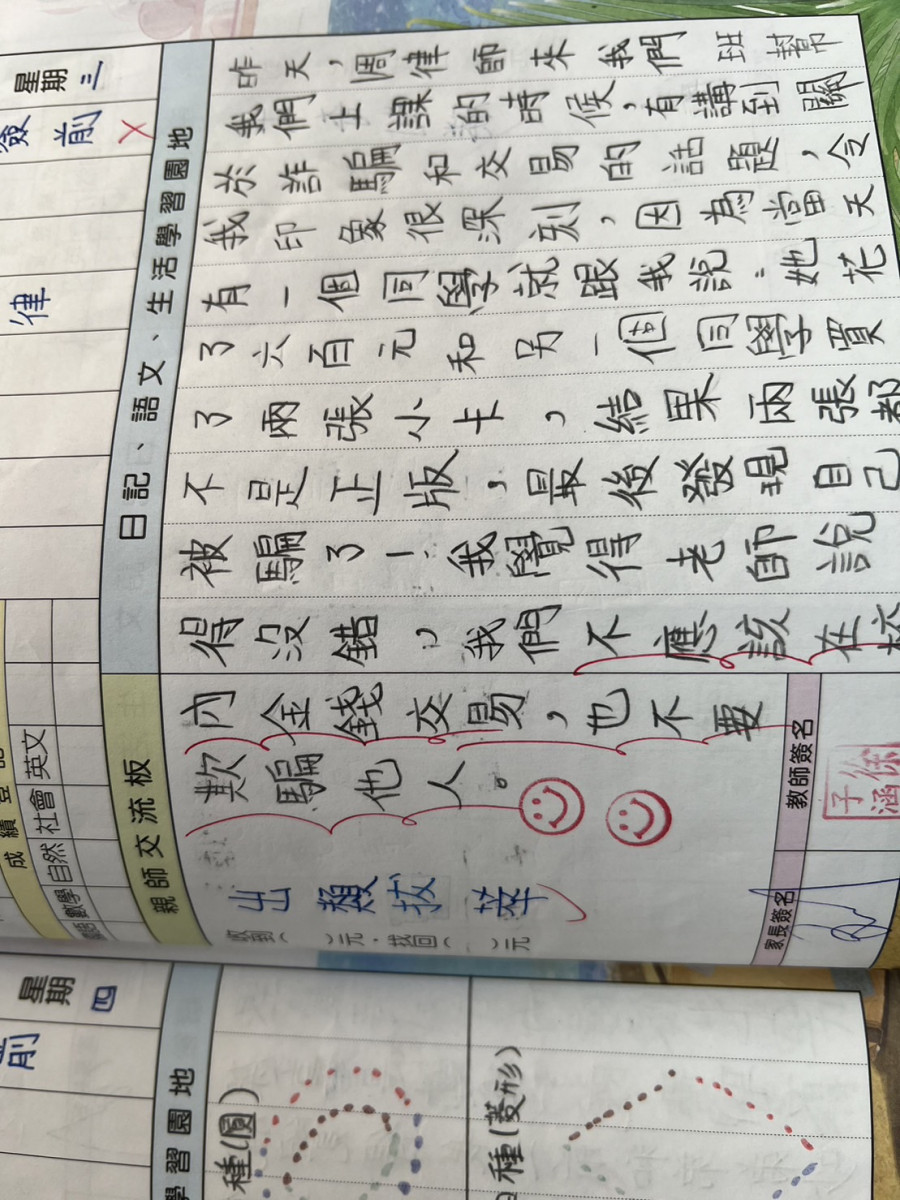 星期三
簽
前
律
日記、語文、生活學習園地
昨天，周律師來我們班幫
我們上課的時候，有講到關
於詐騙和交易的話題，令
我印象很深刻，因為當天
有一個同學就跟我說：她花
了六百元和另一個同學買
了兩張小卡，結果兩張都
不是正版，最後發現自己
被騙了！我覺得老師說
得沒錯，我們不應該在校
內金錢交易，也不要
欺騙他人。
成績登記
數學
自然
社會
英文
親師交流板
出類拔萃
收到( )元．找回( )元
教師簽名
徐子涵
家長簽名
星期四
前
學習園地
種(圓)
種(菱形)